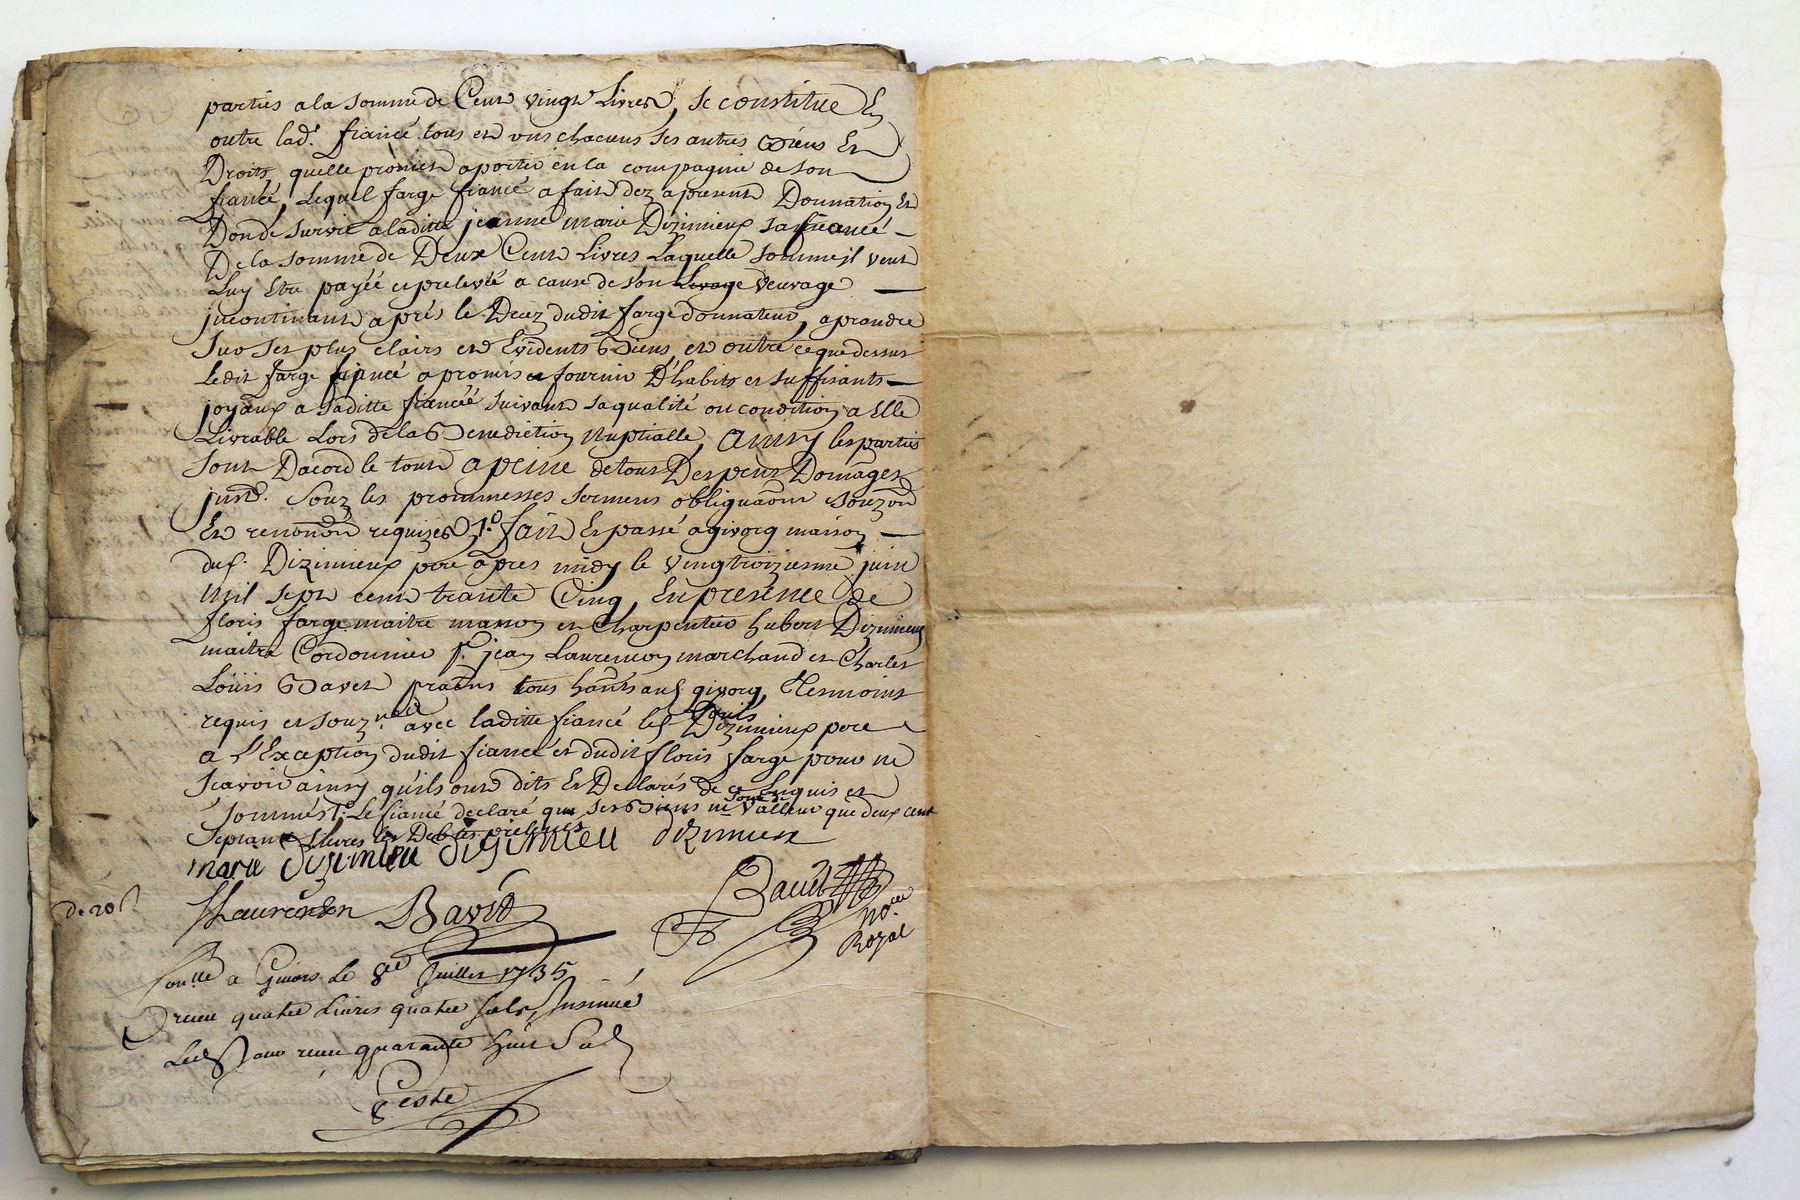 parties a la somme de Cent vingt Livres, se constitue En
outre lad.e fiancé tous et uns chacuns ses autres Biens Et
Droits quelle promet aporter en la compagnie de son
fiancé, Lequel farge fiancé a fait dez apresent Donnation Et
Don de survie a laditte jeanne marie Dizimieux sa fiancé
De la somme de Deux Cent Livres Laquelle somme jl veut
Luy Etre payéé et prelevéé a cause de son veuvage
jncontinant aprés le Decez dudit farge donnateur, a prandre
Sur ses plus clairs et Evidents Biens, et outre ce que dessus
Ledit farge fiancé a promis fournir D'habits et suffisants
joyaux a saditte fiancéé suivant sa qualité ou condition a Elle
Livrable Lors de la Benediction Nuptialle, ainsy les parties
sont Dacord le tout a peine de tous Despens Domages
jnst. Souz les prommesses sermens obligaõns souzõn
Et renonõn requizes fait Et passé a givorg maison
du s. Dizimieux pere apres midy le vingtroizieme juin
mil sept cent trante Cinq, En presence de
floris farge maitre masson et Charpentier hubert Dizimieux
maitre Cordonnier s.r jean Laurencon marchand et Charles
Loüis Bavet pratns tous habts aud. givorg, Tesmoins
requis et souz.nez avec laditte fiancé les Dizimieux pere
a L'Exception dudit fiancé et dudit floris farge pour ne
scavoir ainsy quils ont dits Et Declarés de ce Enquis et
sommés. Le fiancé declaré que ses Biens ne sont de valleur que deux cent
septante Livres
marie dizimieu digimieu dizimieux
Laurenson Bavet
Bauet
No.re
Royal
De 20 s
Con.lle a Givors Le 8.e Juillet 1735
receu quatre Livres quatre sols, Insinué
Led. Jour receu quarante huit Sols
Geste